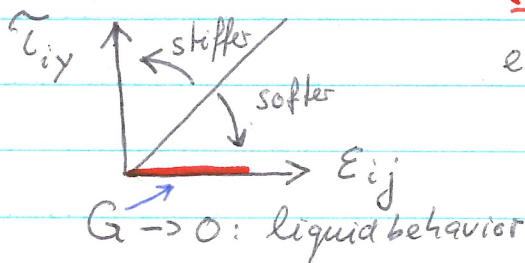 τ̃iy
stiffer
e
softer
εij
G → 0: liquid behavior